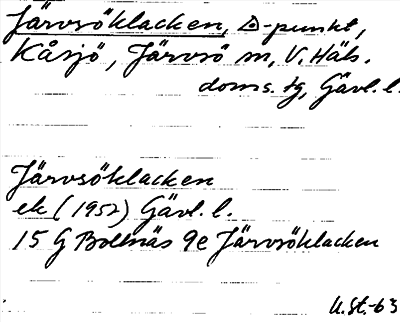 Järvsöklacken, △-punkt,
Kåsjö, Järvsö sn, V. Häls.
doms. tg, Gävl. l.
Järvsöklacken
ek (1957) Gävl. l.
15 G Bollnäs 9e Järvsöklacken
U.St.-63